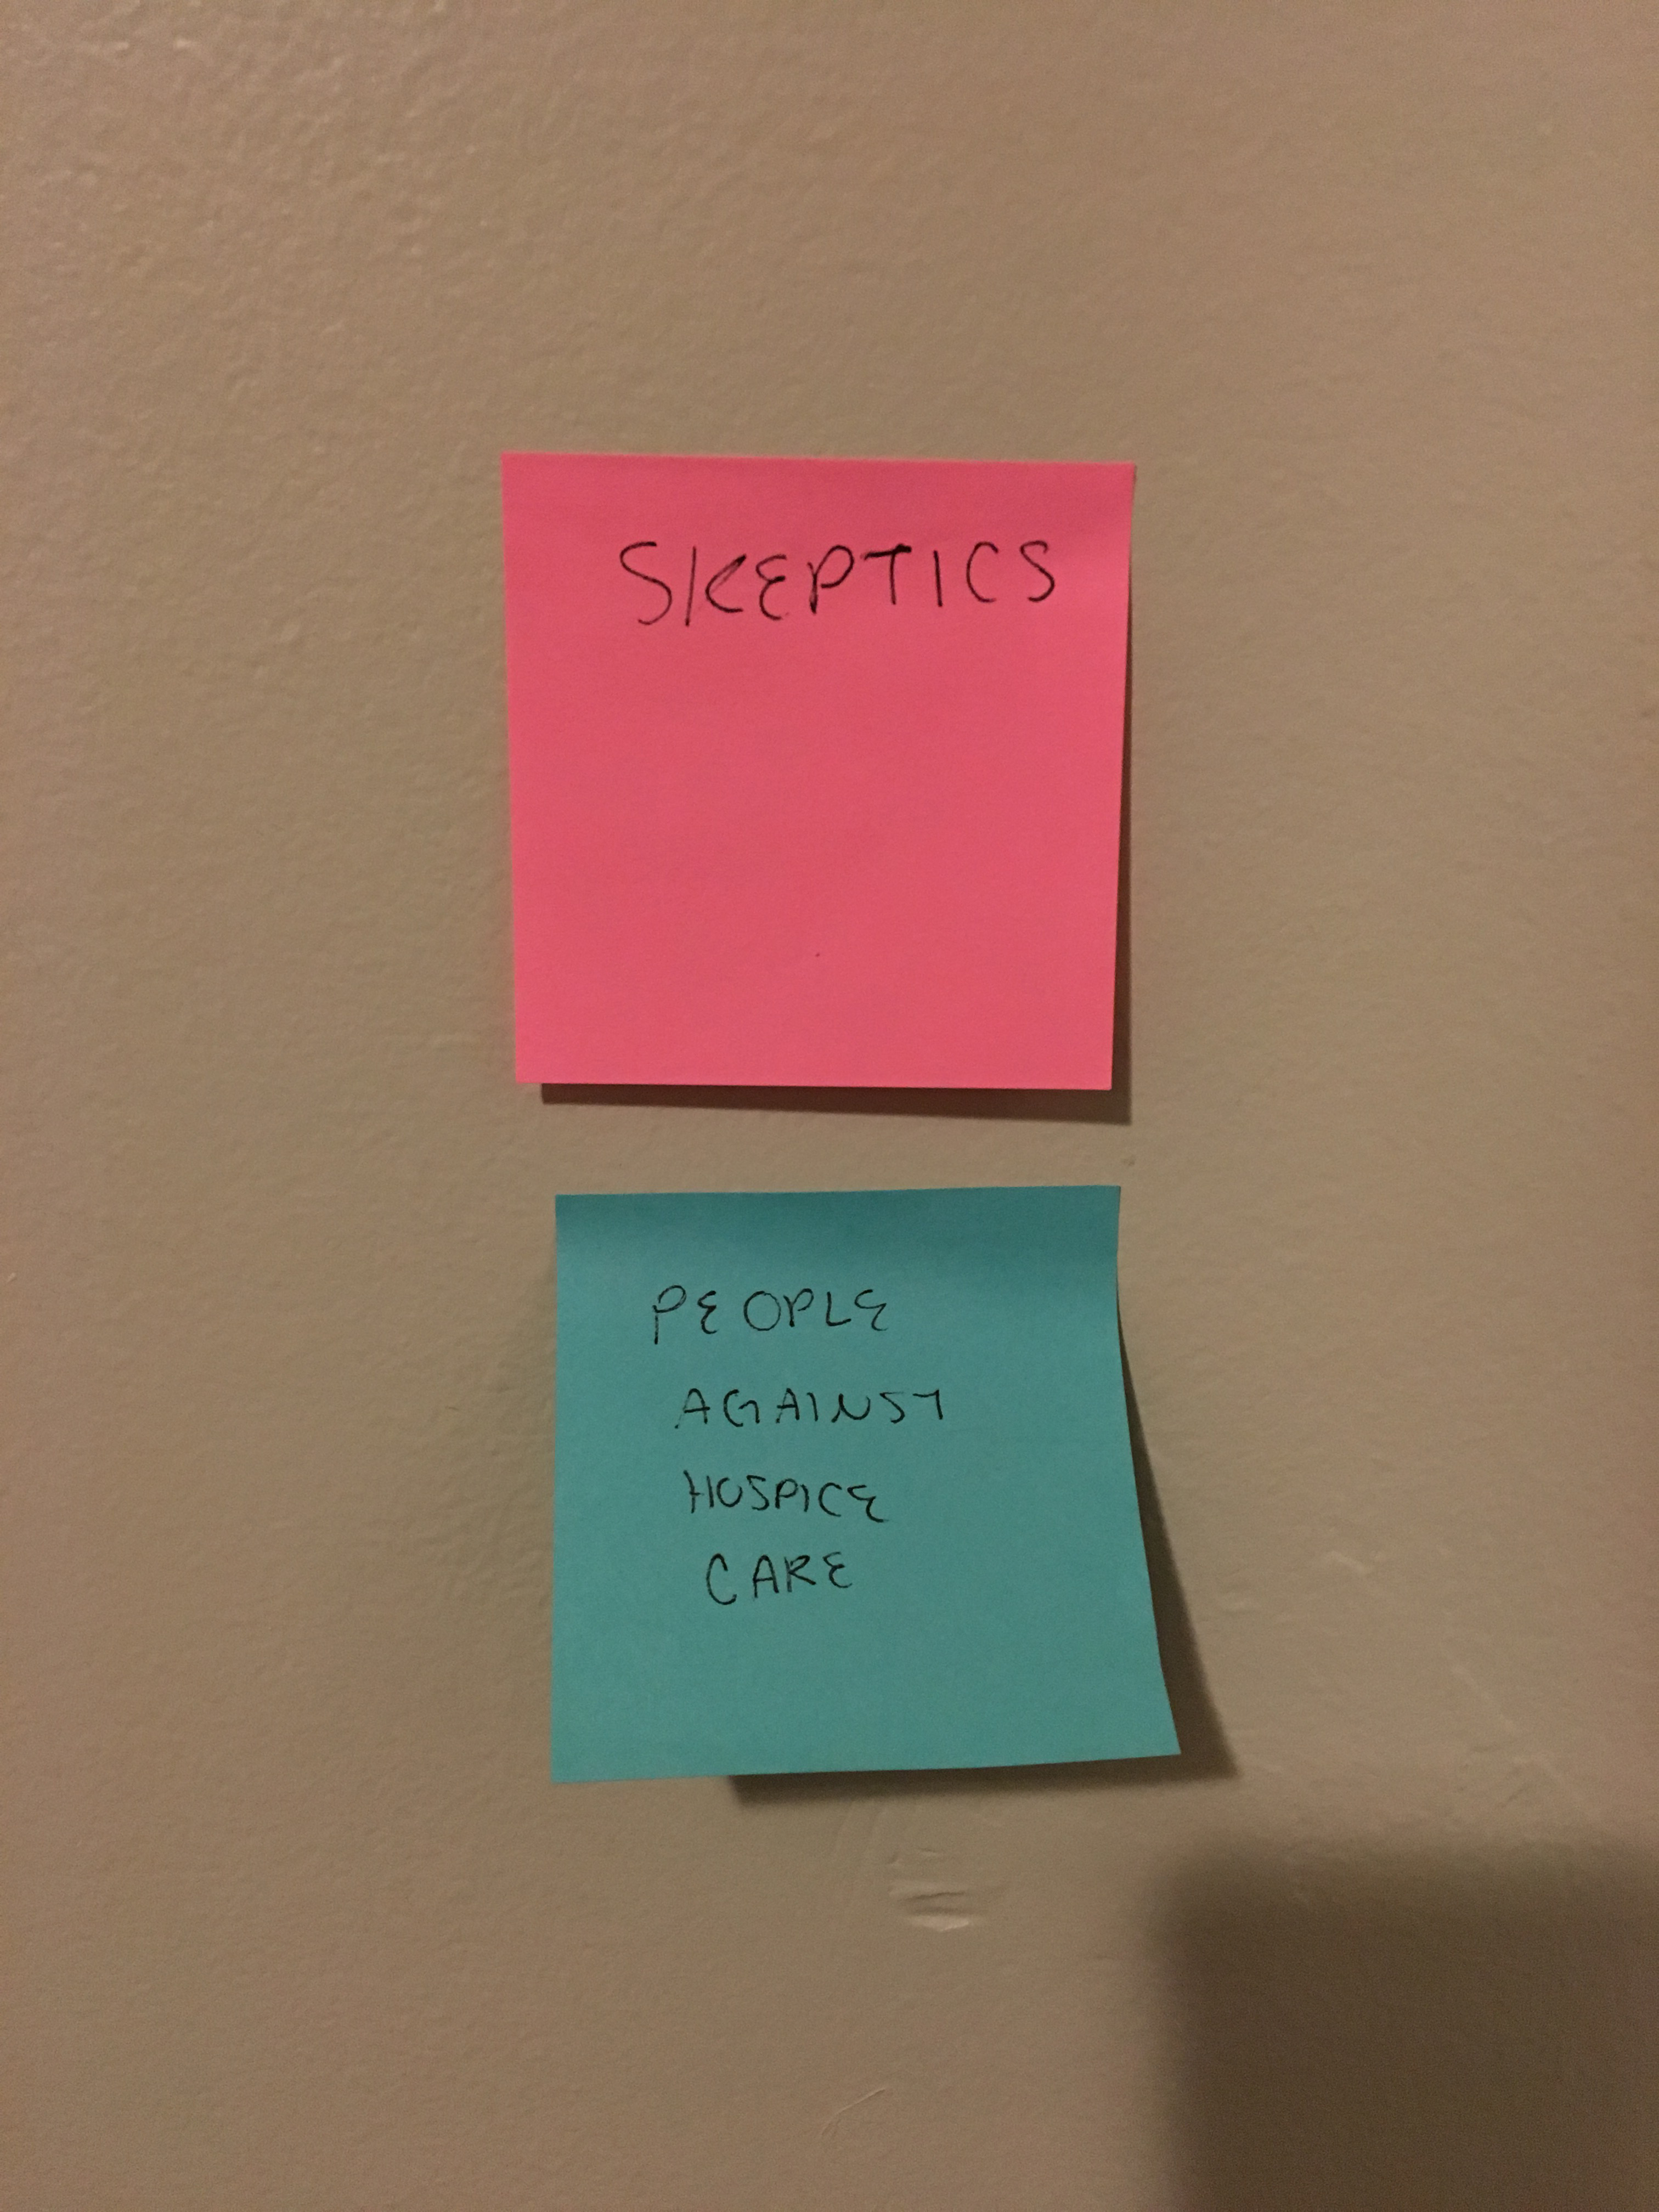 SKEPTICS
PEOPLE
AGAINST
HOSPICE
CARE